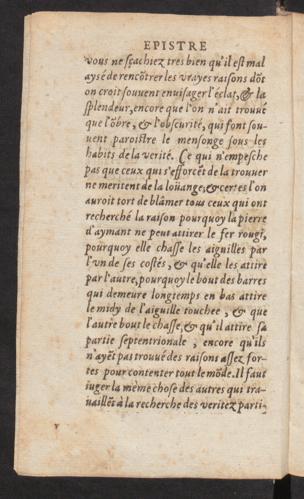 EPISTRE
vous ne sçachiez tres bien qu'il est mal
aysé de rencõtrer les vrayes raisons dõt
on croit souvent envisager l'éclat, & la
splendeur, encore que l'on n'ait trouvé
que l'õbre, & l'obscurité, qui font sou-
vent paroistre le mensonge sous les
habits de la verité. Ce qui n'empesche
pas que ceux qui s'efforcẽt de la trouver
ne meritent de la loüange, & certes l'on
auroit tort de blâmer tous ceux qui ont
recherché la raison pourquoy la pierre
d'aymant ne peut attirer le fer rougi,
pourquoy elle chasse les aiguilles par
l'vn de ses costés, & qu'elle les attire
par l'autre, pourquoy le bout des barres
qui demeure longtemps en bas attire
le midy de l'aiguille touchee, & que
l'autre bout le chasse, & qu'il attire sa
partie septentrionale, encore qu'ils
n'ayẽt pas trouvé des raisons assez for-
tes pour contenter tout le mõde. Il faut
iuger la même chose des autres qui tra-
vaillẽt à la recherche des veritez parti-